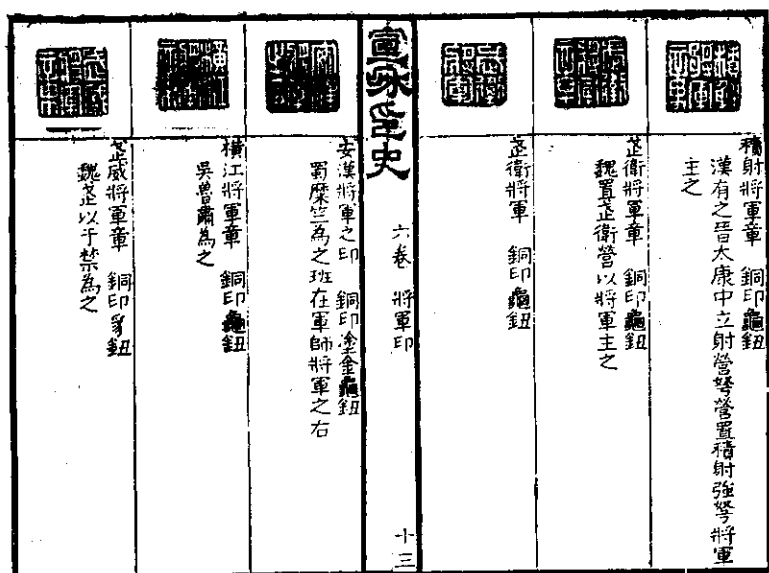 積射將軍章　銅印龜鈕
漢有之晉太康中立射營弩營置積射強弩將軍
主之
武衛將軍章　銅印龜鈕
魏置武衛營以將軍主之
武衛將軍　銅印龜鈕
宣和印史　六卷　將軍印　十三
安漢將軍之印　銅印塗金龜鈕
蜀糜竺為之班在軍師將軍之右
橫江將軍章　銅印龜鈕
吳魯肅為之
武威將軍章　銅印豸鈕
魏武以于禁為之